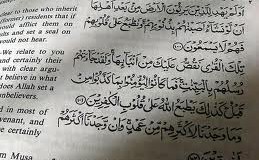 clear to those who inherit
(former) residents that if
could afflict them on
ults and set a seal on
would not hear.
We relate to you
and certainly their
with clear argu-
t believe in what
does Allah set a
unbelievers.
d in most of
venant, and
re certainly
m Musa
أَوَلَمْ يَهْدِ لِلَّذِينَ يَرِثُونَ الْأَرْضَ مِنْ بَعْدِ أَهْلِهَا
أَنْ لَوْ نَشَاءُ أَصَبْنَٰهُمْ بِذُنُوبِهِمْ وَنَطْبَعُ عَلَىٰ قُلُوبِهِمْ
فَهُمْ لَا يَسْمَعُونَ ﴿١٠٠﴾
تِلْكَ الْقُرَىٰ نَقُصُّ عَلَيْكَ مِنْ أَنْبَائِهَا وَلَقَدْ جَاءَتْهُمْ
رُسُلُهُمْ بِالْبَيِّنَٰتِ فَمَا كَانُوا لِيُؤْمِنُوا بِمَا كَذَّبُوا مِنْ
قَبْلُ كَذَٰلِكَ يَطْبَعُ اللَّهُ عَلَىٰ قُلُوبِ الْكَٰفِرِينَ ﴿١٠١﴾
وَمَا وَجَدْنَا لِأَكْثَرِهِمْ مِنْ عَهْدٍ وَإِنْ وَجَدْنَا أَكْثَرَهُمْ